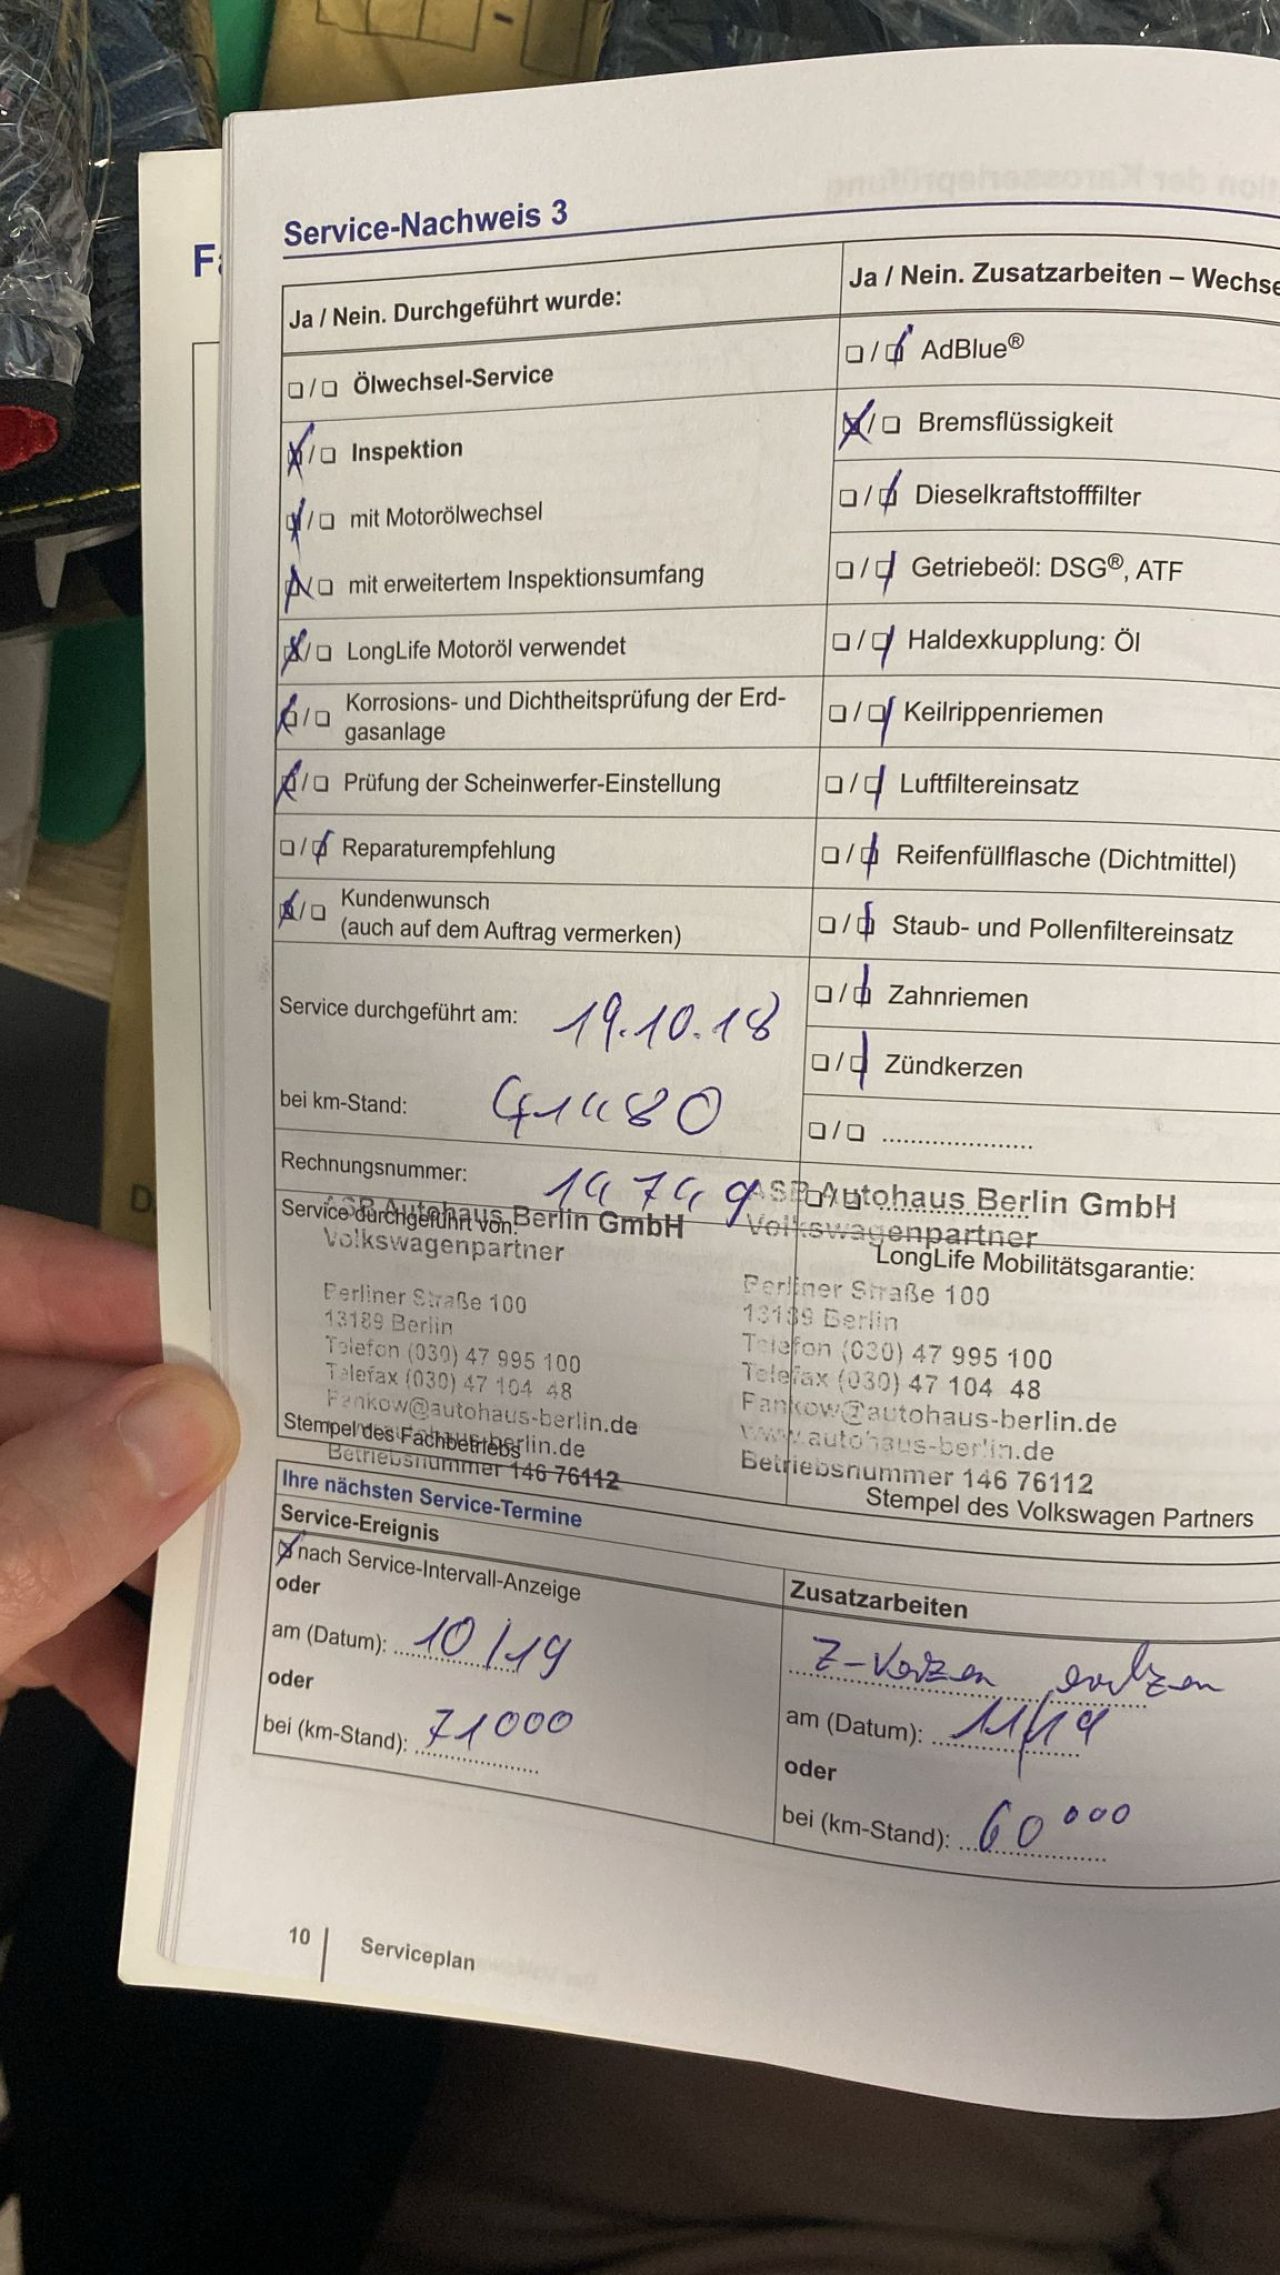 Service-Nachweis 3
Ja / Nein. Durchgeführt wurde:
❏ / ❏ Ölwechsel-Service
❏ / ❏ Inspektion
❏ / ❏ mit Motorölwechsel
❏ / ❏ mit erweitertem Inspektionsumfang
❏ / ❏ LongLife Motoröl verwendet
❏ / ❏ Korrosions- und Dichtheitsprüfung der Erd-
gasanlage
❏ / ❏ Prüfung der Scheinwerfer-Einstellung
❏ / ❏ Reparaturempfehlung
❏ / ❏ Kundenwunsch
(auch auf dem Auftrag vermerken)
Service durchgeführt am: 19.10.18
bei km-Stand: 41480
Rechnungsnummer: 14749
Service durchgeführt von:
ASB Autohaus Berlin GmbH
Volkswagenpartner
Berliner Straße 100
13189 Berlin
Telefon (030) 47 995 100
Telefax (030) 47 104 48
Pankow@autohaus-berlin.de
www.autohaus-berlin.de
Betriebsnummer 146 76112
Stempel des Fachbetriebs
Ja / Nein. Zusatzarbeiten – Wechse
❏ / ❏ AdBlue®
❏ / ❏ Bremsflüssigkeit
❏ / ❏ Dieselkraftstofffilter
❏ / ❏ Getriebeöl: DSG®, ATF
❏ / ❏ Haldexkupplung: Öl
❏ / ❏ Keilrippenriemen
❏ / ❏ Luftfiltereinsatz
❏ / ❏ Reifenfüllflasche (Dichtmittel)
❏ / ❏ Staub- und Pollenfiltereinsatz
❏ / ❏ Zahnriemen
❏ / ❏ Zündkerzen
❏ / ❏ ......................
❏ / ❏ ......................
LongLife Mobilitätsgarantie:
ASB Autohaus Berlin GmbH
Volkswagenpartner
Berliner Straße 100
13189 Berlin
Telefon (030) 47 995 100
Telefax (030) 47 104 48
Pankow@autohaus-berlin.de
www.autohaus-berlin.de
Betriebsnummer 146 76112
Stempel des Volkswagen Partners
Ihre nächsten Service-Termine
Service-Ereignis
❏ nach Service-Intervall-Anzeige
oder
am (Datum): 10/19
oder
bei (km-Stand): 71000
Zusatzarbeiten
am (Datum): 11/19
oder
bei (km-Stand): 60000
10 | Serviceplan